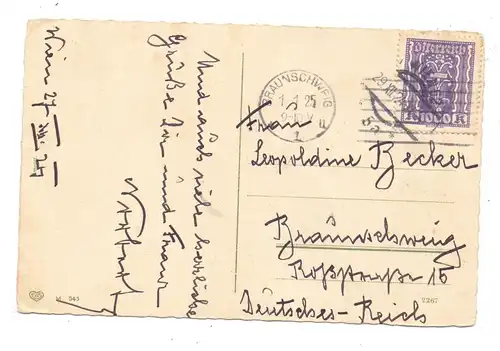 Wien 27. XII. 24
Und auch viele herzliche
Grüße Dir und Franz
Norbert
BRAUNSCHWEIG
1.1.25
1
u
29.XII.24
1000 K
Frau
Leopoldine Becker
Braunschweig
Roßstraße 15
Deutsches-Reich
M 345
2267